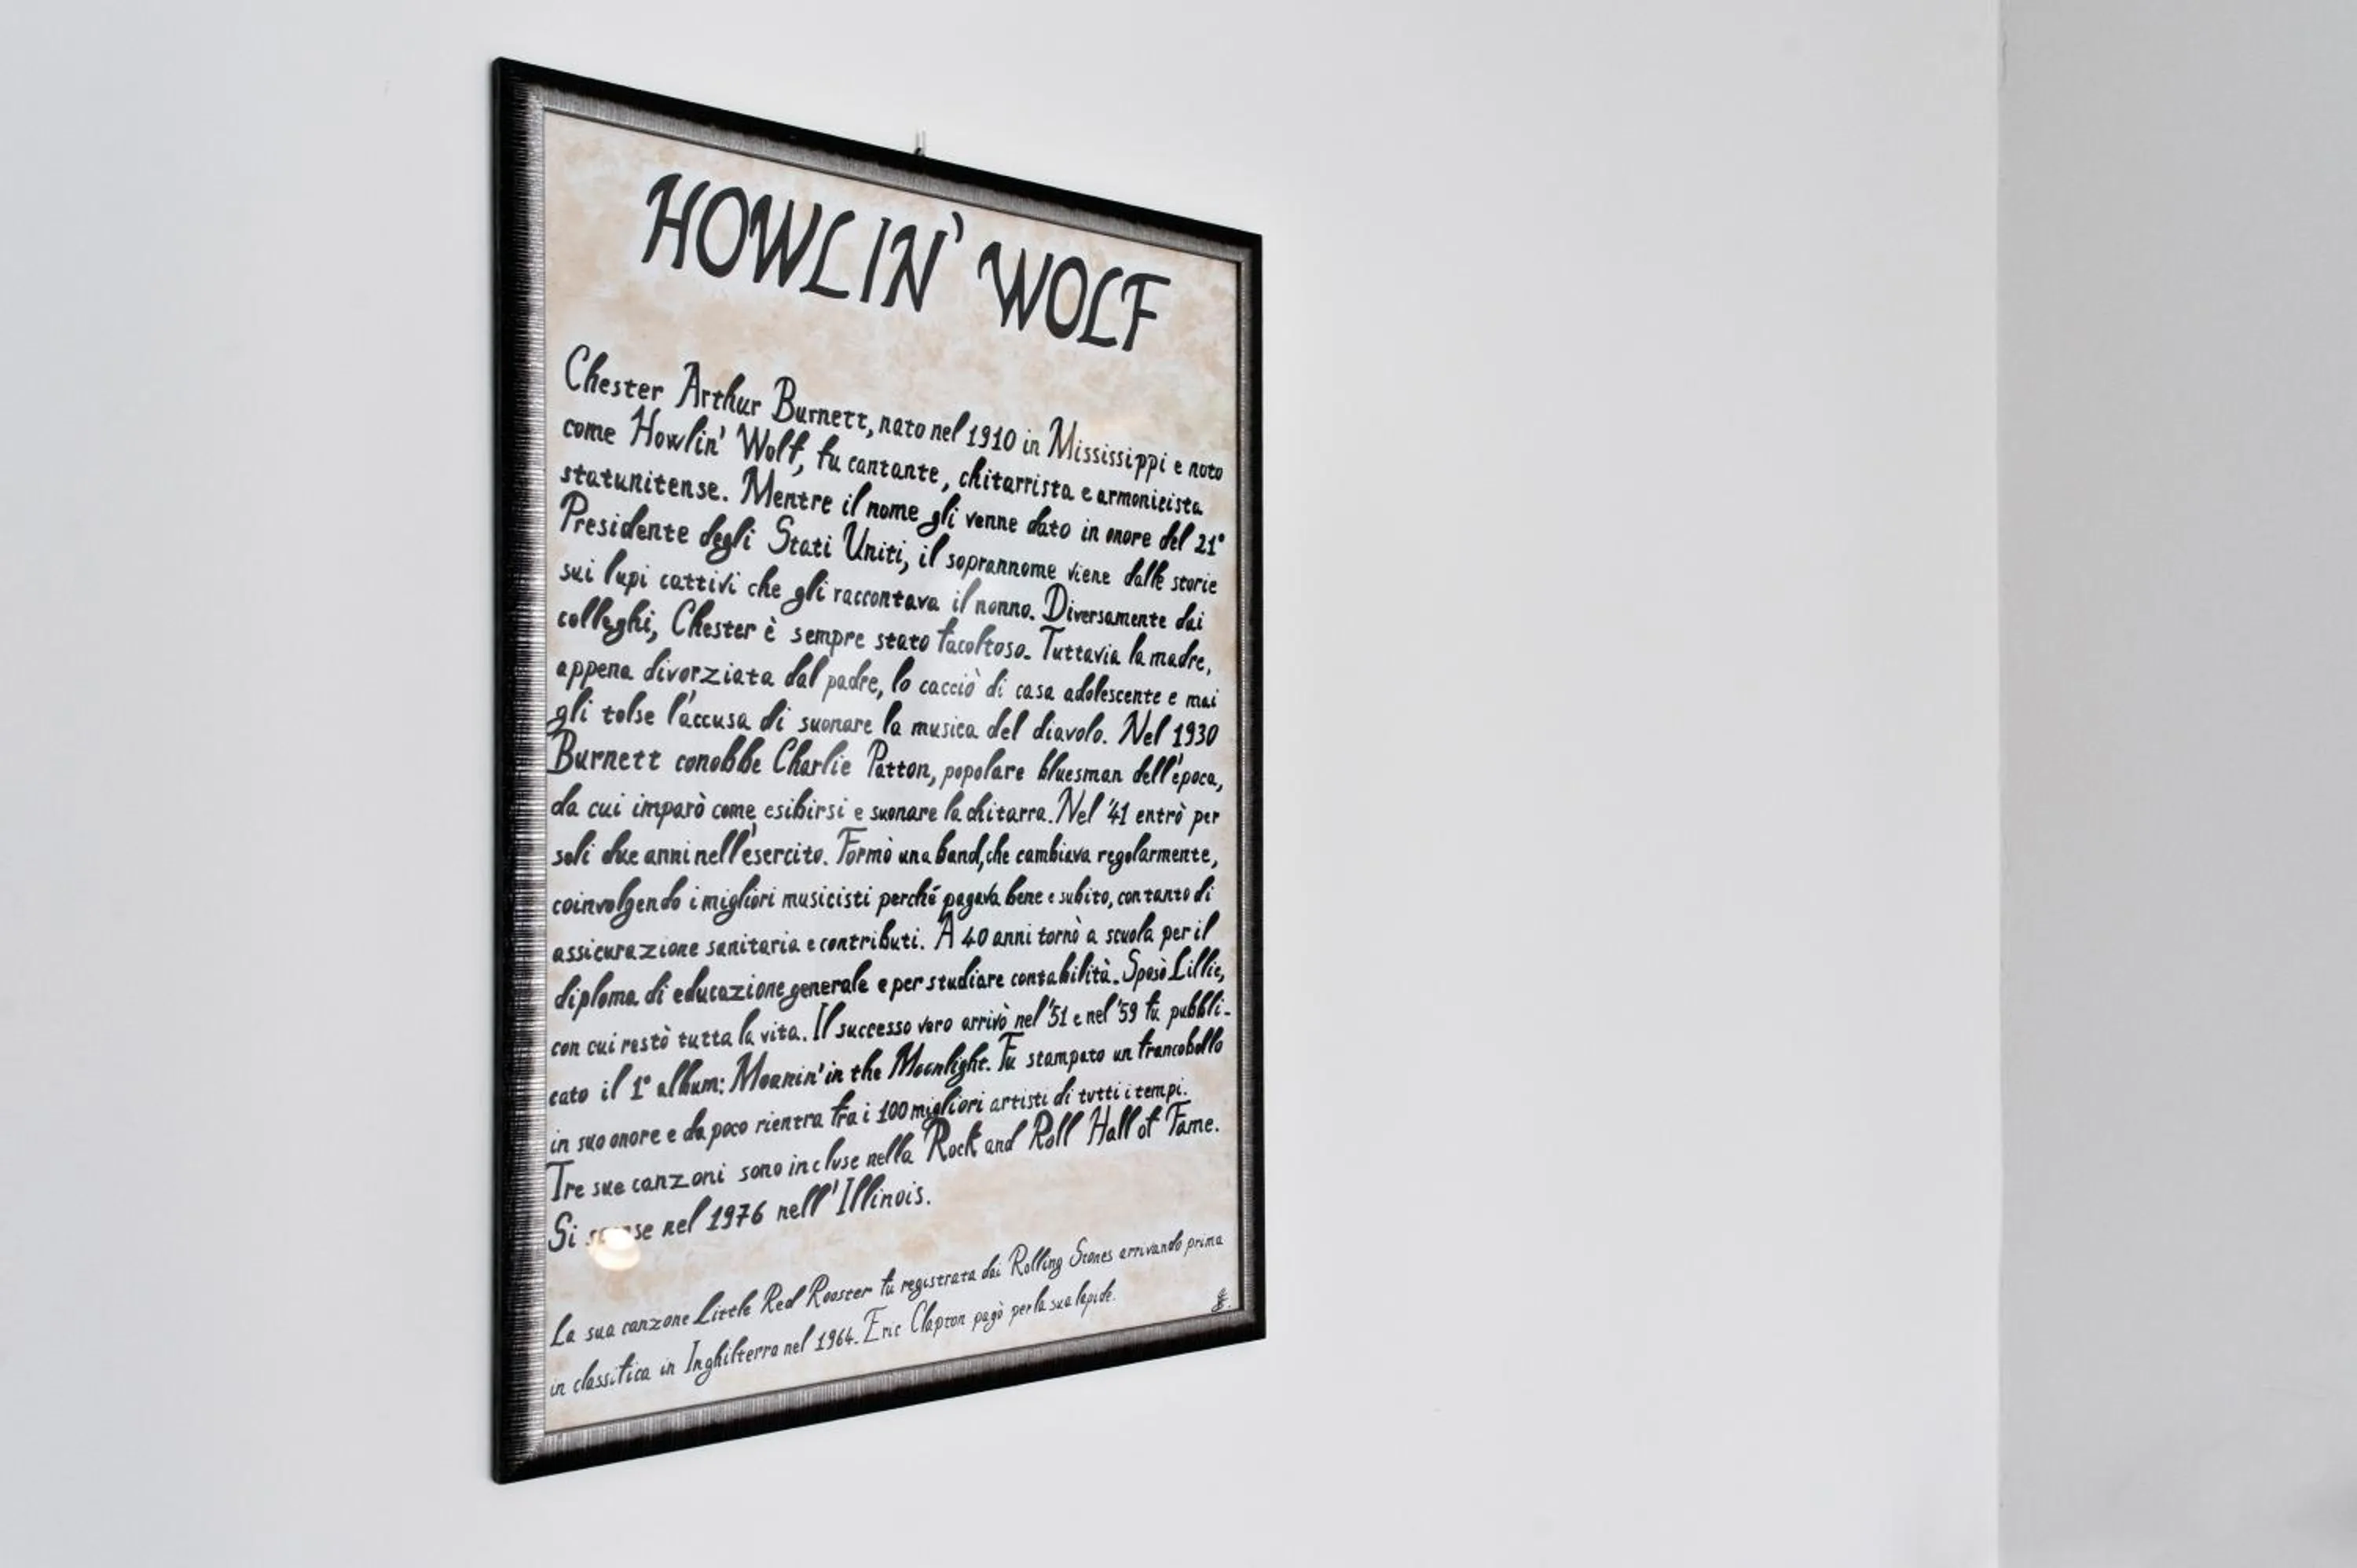 HOWLIN' WOLF
Chester Arthur Burnett, nato nel 1910 in Mississippi e noto
come Howlin' Wolf, fu cantante, chitarrista e armonicista
statunitense. Mentre il nome gli venne dato in onore del 21°
Presidente degli Stati Uniti, il soprannome viene dalle storie
sui lupi cattivi che gli raccontava il nonno. Diversamente dai
colleghi, Chester è sempre stato facoltoso. Tuttavia la madre,
appena divorziata dal padre, lo cacciò di casa adolescente e mai
gli tolse l'accusa di suonare la musica del diavolo. Nel 1930
Burnett conobbe Charlie Patton, popolare bluesman dell'epoca,
da cui imparò come esibirsi e suonare la chitarra. Nel '41 entrò per
soli due anni nell'esercito. Formò una band, che cambiava regolarmente,
coinvolgendo i migliori musicisti perché pagava bene e subito, con tanto di
assicurazione sanitaria e contributi. A 40 anni tornò a scuola per il
diploma di educazione generale e per studiare contabilità. Sposò Lillie,
con cui restò tutta la vita. Il successo vero arrivò nel '51 e nel '59 fu pubbli-
cato il 1° album: Moanin' in the Moonlight. Fu stampato un francobollo
in suo onore e da poco rientra fra i 100 migliori artisti di tutti i tempi.
Tre sue canzoni sono incluse nella Rock and Roll Hall of Fame.
Si nel 1976 nell'Illinois.
La sua canzone Little Red Rooster fu registrata dai Rolling Stones arrivando prima
in classifica in Inghilterra nel 1964. Eric Clapton pagò per la sua lapide.